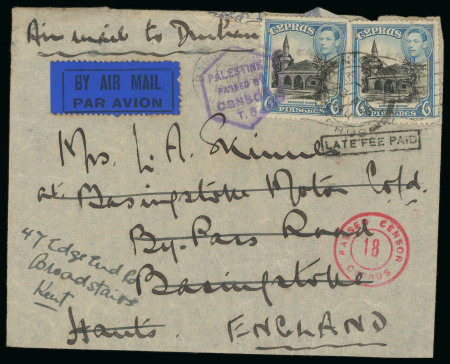 Air mail to Durban
BY AIR MAIL
PAR AVION
PALESTINE
PASSED BY
CENSOR
T. 8
CYPRUS
6 PIASTRES 6
CYPRUS
6 PIASTRES 6
LATE FEE PAID
Mrs. L. A. Skinner
at Basingstoke Motor Co Ld.
By-Pass Road
Basingstoke
Hants. ENGLAND
47 Edge End Rd
Broadstairs
Kent
PASSED CENSOR
18
CYPRUS